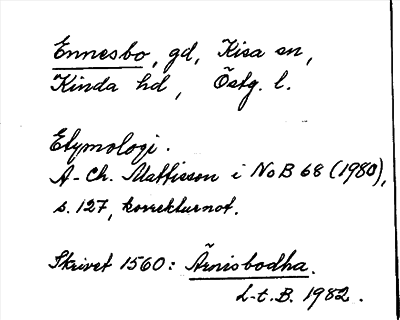 Ennesbo, gd, Kisa sn,
Kinda hd, Östg. l.
Etymologi.
A-Ch. Mattisson i NoB 68 (1980),
s. 127, korrekturnot.
Skrivet 1560: Ärnisbodha.
L-t.B. 1982.